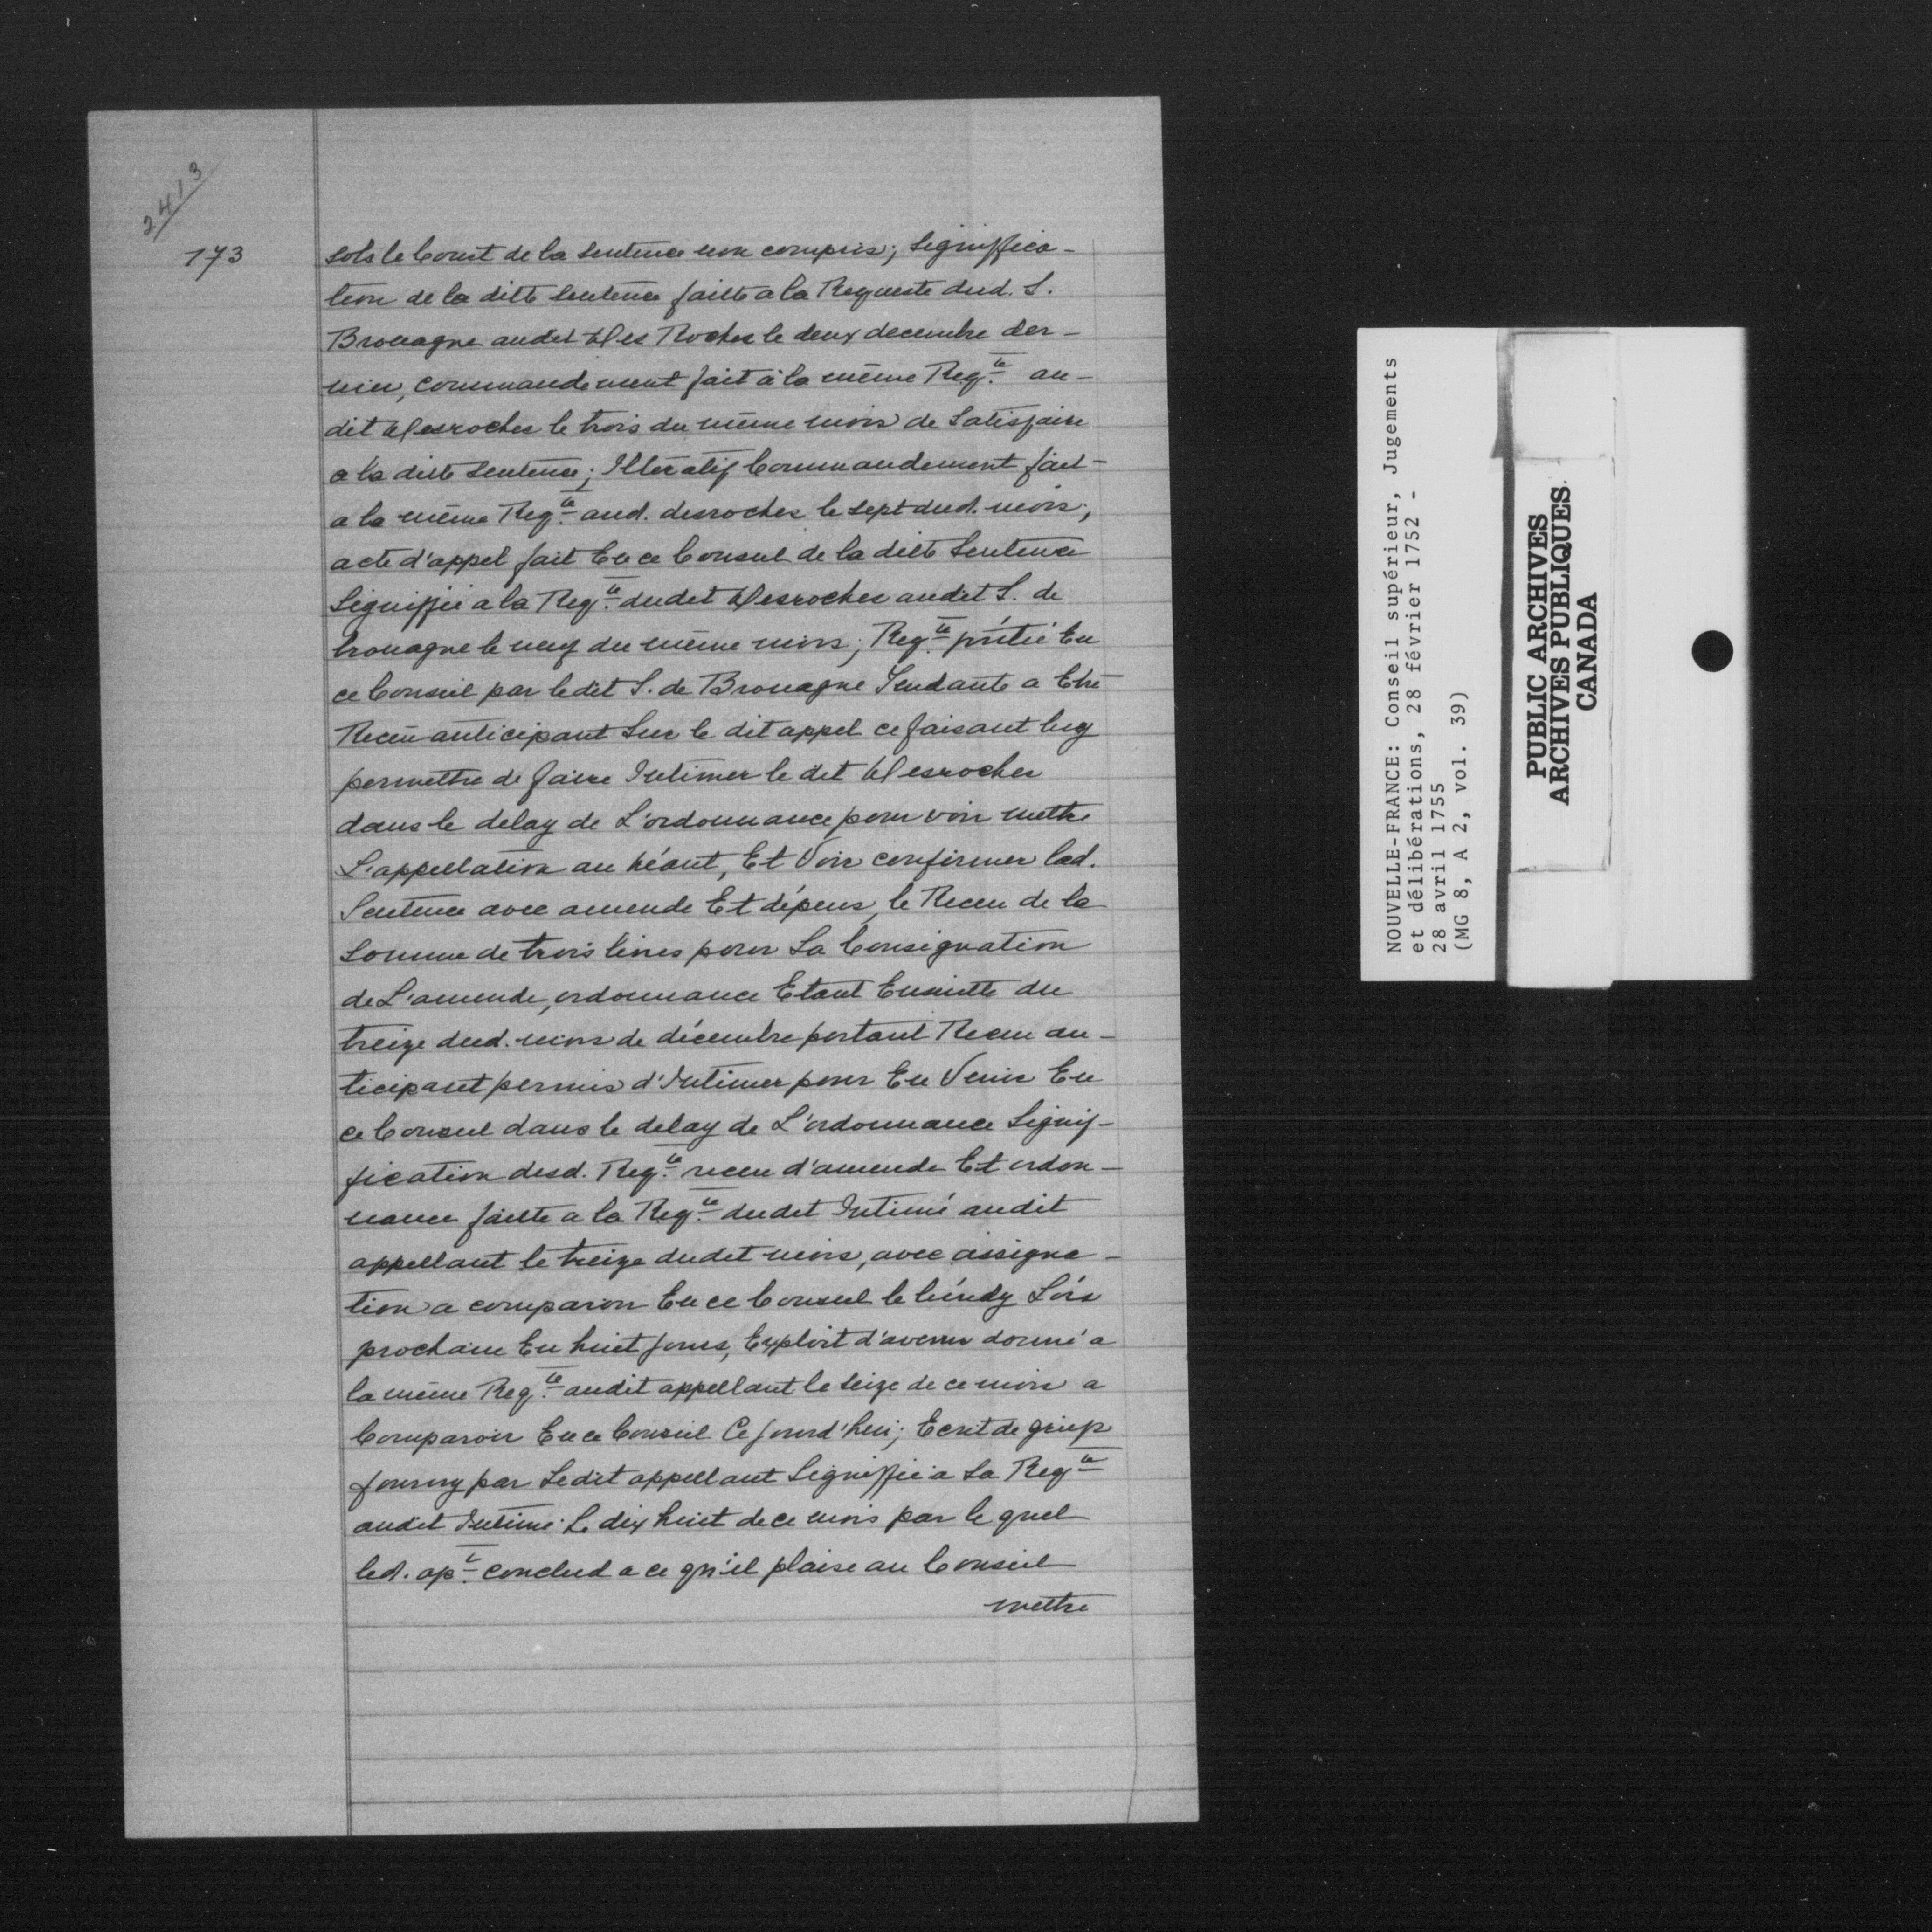 2413
173
sols le Coust de la Sentence non compris; Signiffica-
tion de la ditte Sentence faitte a la Requeste dud. S.
Brouague audit Des Roches le deux decembre der-
nier, commandement fait à la même Reqte au-
dit Desroches le trois du même mois de Satisfaire
a la ditte Sentence; Itteratif Commandement fait
a la même Reqte aud. desroches le sept dud. mois;
acte d'appel fait En ce Conseil de la ditte Sentence
Signiffié a la Reqte dudit Desroches audit S. de
brouague le neuf du même mois; Reqte pntée En
ce Conseil par ledit S. de Brouague Tendante a Etre
Receu anticipant Sur le dit appel ce faisant luy
permettre de faire Intimer le dit Desroches
dans le delay de L'ordonnance pour voir mettre
L'appellation au néant, Et Voir confirmer lad.
Sentence avec amende Et dépens, le Receu de la
Somme de trois livres pour La Consignation
de L'amende, ordonnance Etant Ensuitte du
treize dud. mois de décembre portant Receu an-
ticipant permis d'Intimer pour En Venir En
ce Conseil dans le delay de L'ordonnance Signif-
fication desd. Reqte receu d'amende Et ordon-
nance faitte a la Reqte dudit Intimé audit
appellant le treize dudit mois, avec assigna-
tion a comparoir En ce Conseil le lundy Lors
prochain En huit jours, Exploit d'avenir donné a
la même Reqte audit appellant le seize de ce mois a
Comparoir En ce Conseil Ce jourd'hui; Ecrit de grief
fourny par Ledit appellant Signiffié a Sa Reqte
audit Intimé Le dix huit de ce mois par le quel
led. apt conclud a ce qu'il plaise au Conseil
mettre
NOUVELLE-FRANCE: Conseil supérieur, Jugements
et délibérations, 28 février 1752 -
28 avril 1755
(MG 8, A 2, vol. 39)
PUBLIC ARCHIVES
ARCHIVES PUBLIQUES
CANADA